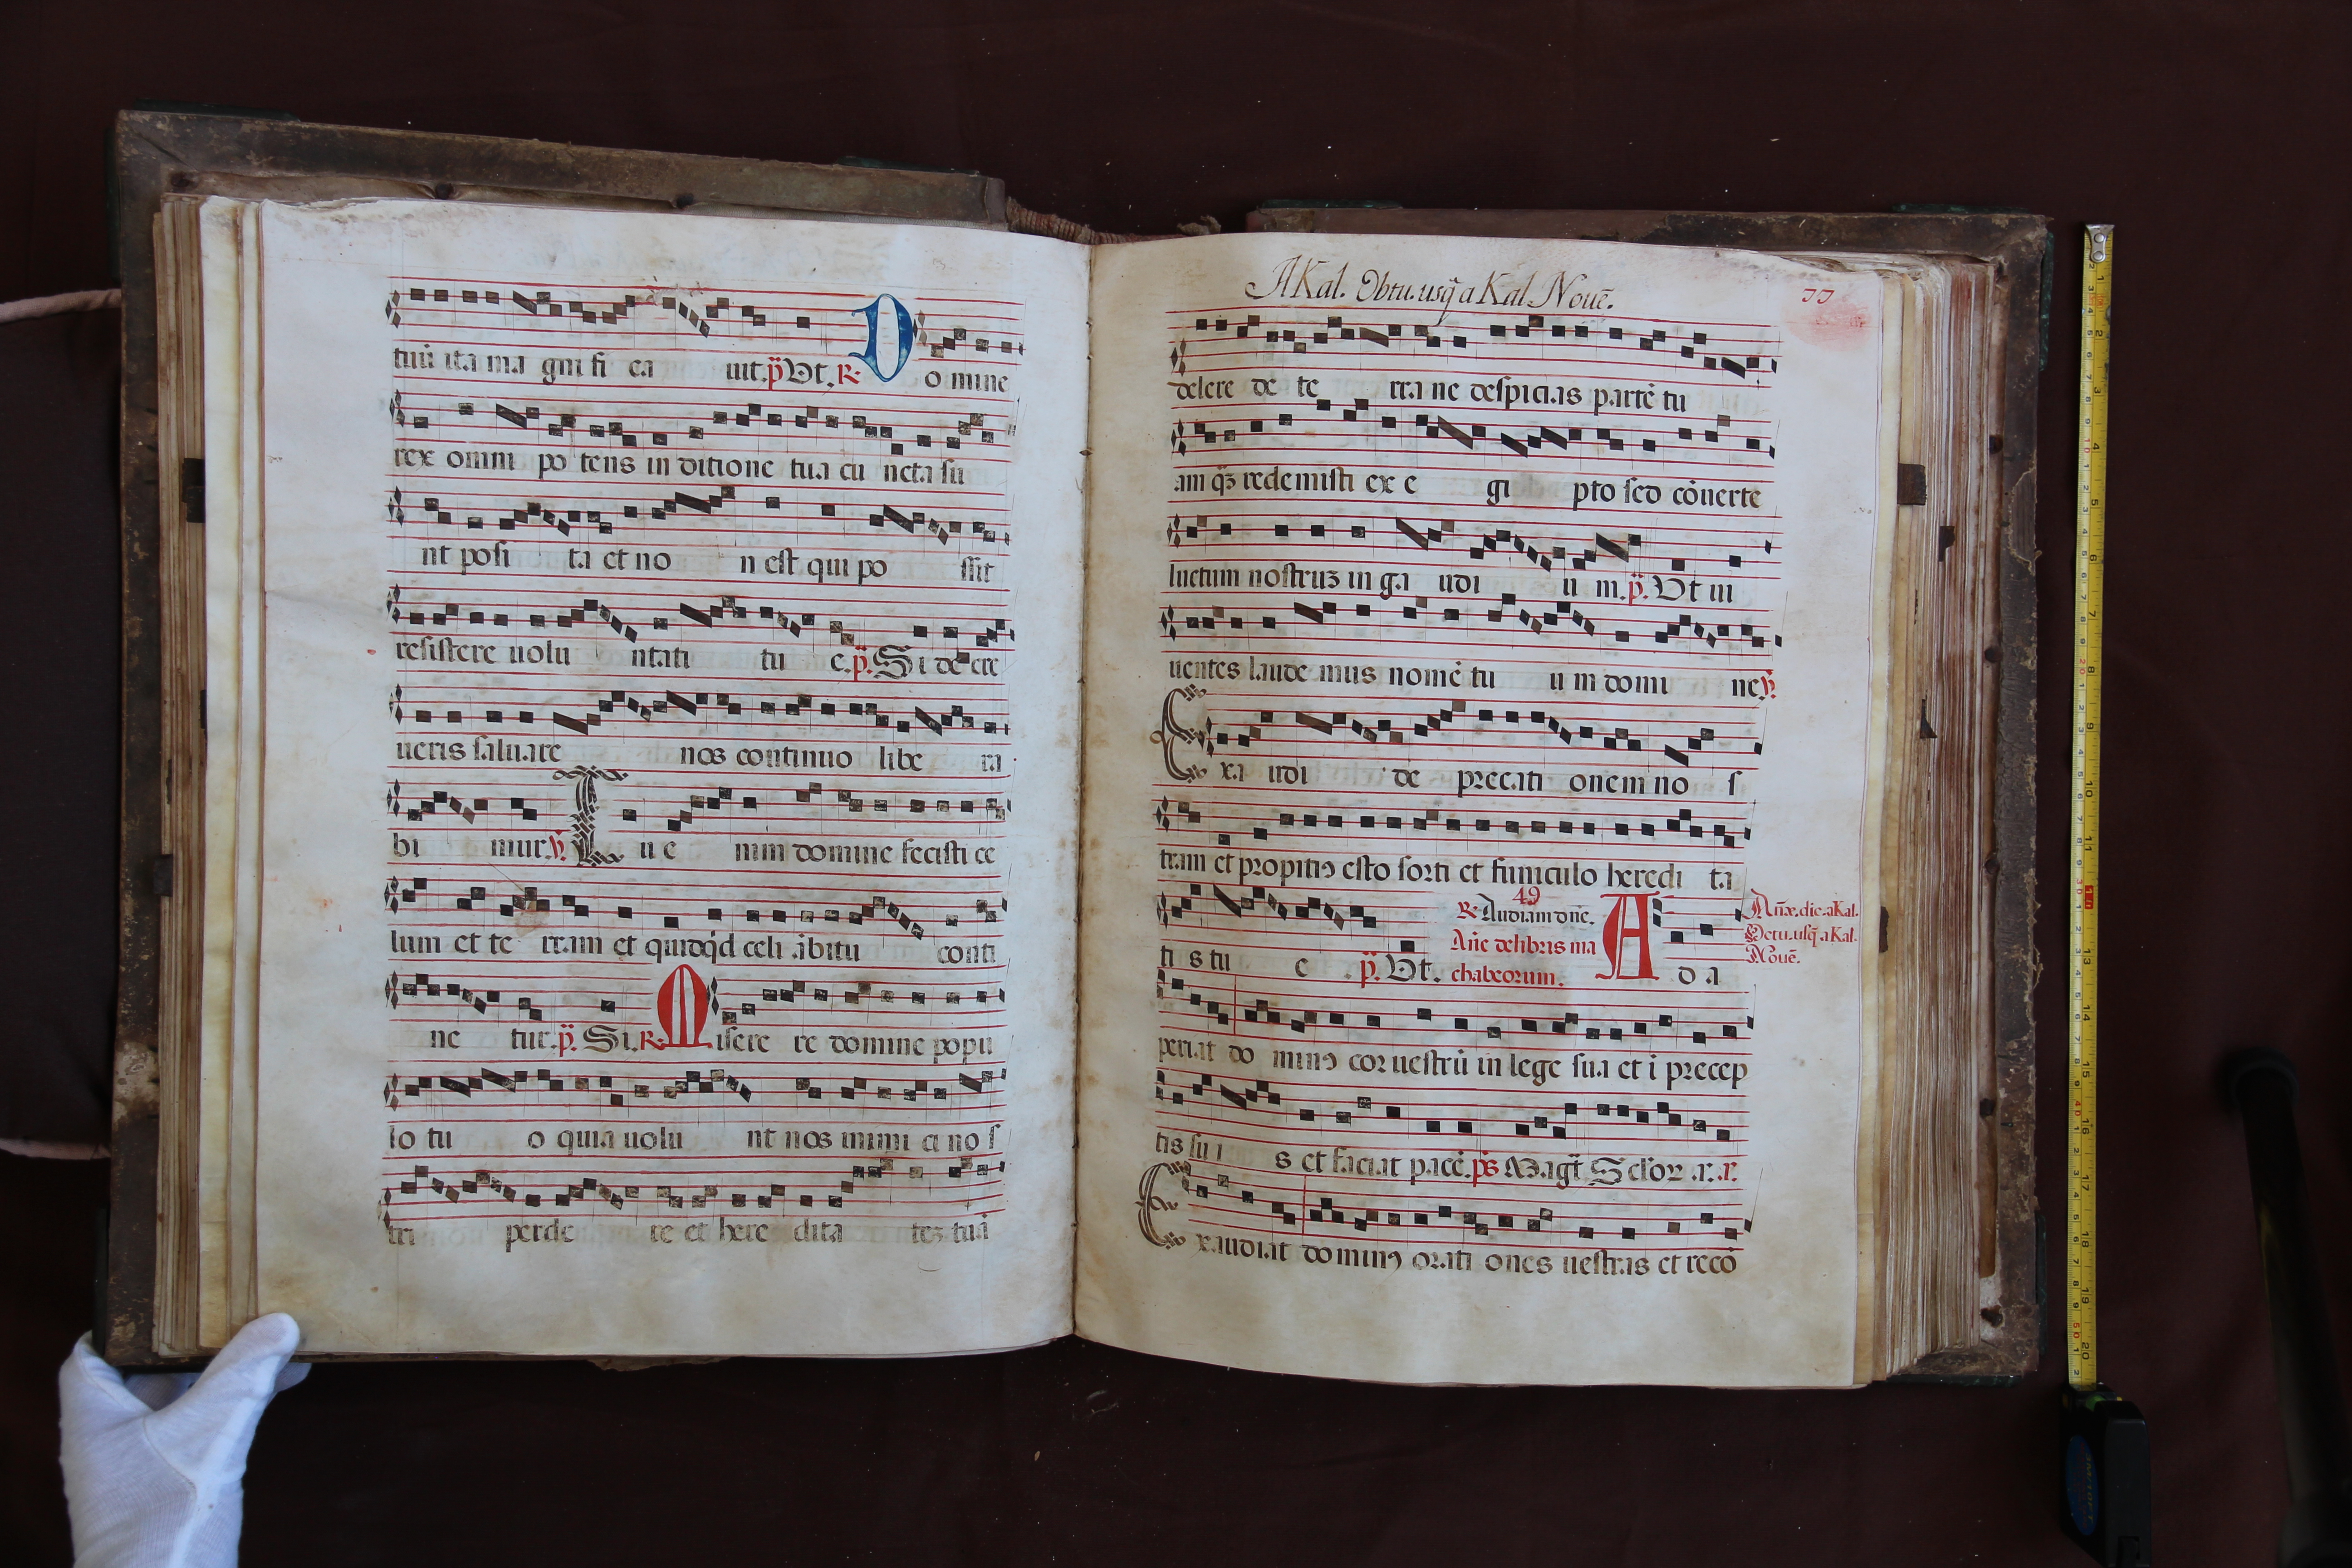 tuū ita ma gni fi ca uit. p̄ Ut. R D omine
rex omni po tens in ditione tua cu ncta su
nt posi ta et no n est qui po ssit
resistere uolu ntati tu e. p̄. Si de cre
ueris saluare nos continuo libe ra
bi mur. ℣ T u e nim domine fecisti ce
lum et te rram et quidq̇d celi ābitu conti
ne tur. p̄. Si. R. M isere re domine popu
lo tu o quia uolu nt nos inimi ci no s
tri perde re et here dita teʒ tuā
A Kal. Obtu. usq̄ a Kal. Nouē.
77
delere de te rra ne despicias partē tu
am qʒ redemisti ex e gi pto sed cōuerte
luctum nostruʒ in ga udi u m. p̄. Ut ui
uentes laude mus nomē tu u m domi ne ℣
E xa udi de precati onem no s
tram et propitiꝰ esto sorti et funiculo heredi ta
ti s tu e p̄. Ut.
49
R Audiam dn̄e.
Añe de libris ma
chabeorum.
A d a
Añæ. dic. a Kal.
Octu. usq̄ a Kal.
Nouē.
periat do minꝰ cor uestrū in lege sua et ī precep
tis su i s et faciat pacē. p̄s Magt̄. Sclꝛoꝝ .r. r.
E xaudiat do minꝰ orati ones uestras et recō